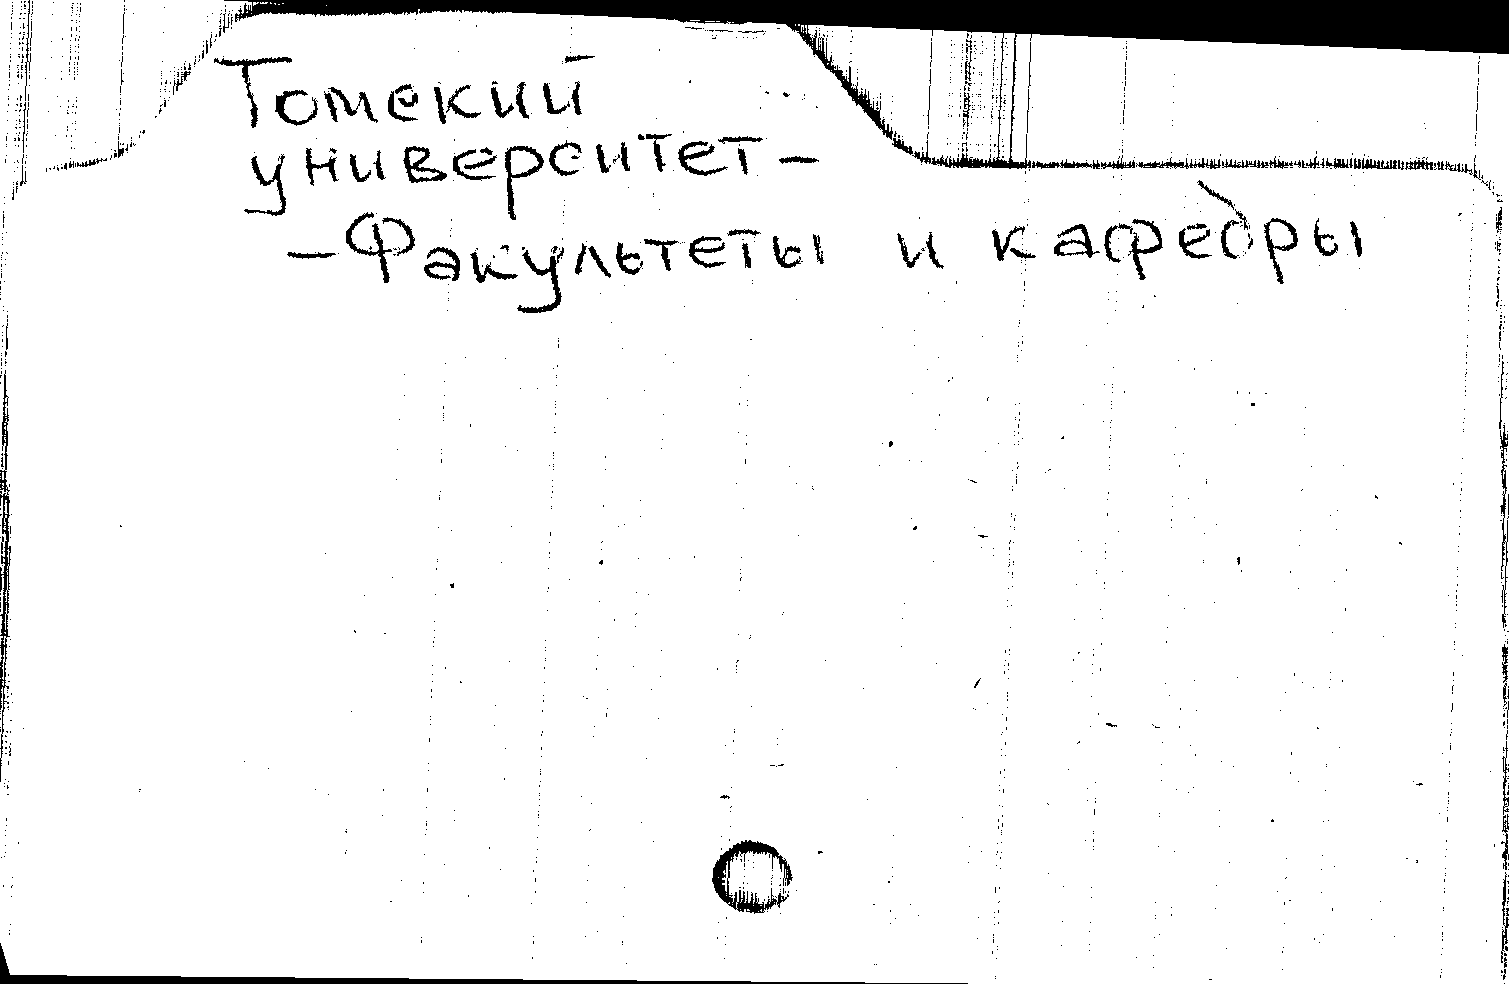 Томский
университет –
– Факультеты и кафедры